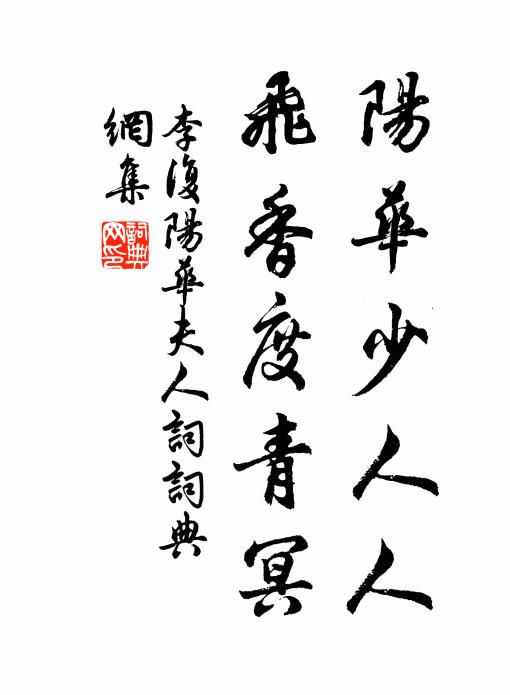 陽華少人人
飛香度青冥
李復陽華夫人詞詞典
網集
詞典
网印